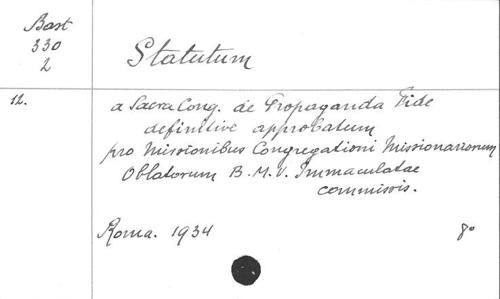 Bast
330
2
Statutum
12.
a Sacra Cong. de Propaganda Fide
definitive approbatum
pro Missionibus Congregationi Missionariorum
Oblatorum B.M.V. Immaculatae
commissis.
Roma. 1934
8°